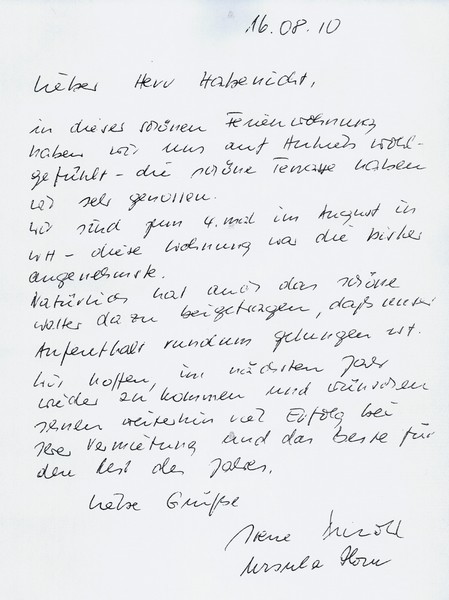 16.08.10
Lieber Herr Habenicht,
in dieser schönen Ferienwohnung
haben wir uns auf Anhieb wohl-
gefühlt - die schöne Terrasse haben
wir sehr genossen.
Wir sind zum 4. mal im August in
- diese Wohnung war die bisher
angenehmste.
Natürlich hat auch das schöne
Wetter dazu beigetragen, daß unser
Aufenthalt rundum gelungen ist.
Wir hoffen, im nächsten Jahr
wieder zu kommen und wünschen
Ihnen weiterhin viel Erfolg bei
Ihrer Vermietung und das Beste für
den Rest des Jahres.
Liebe Grüße
Irene
Ursula Horn